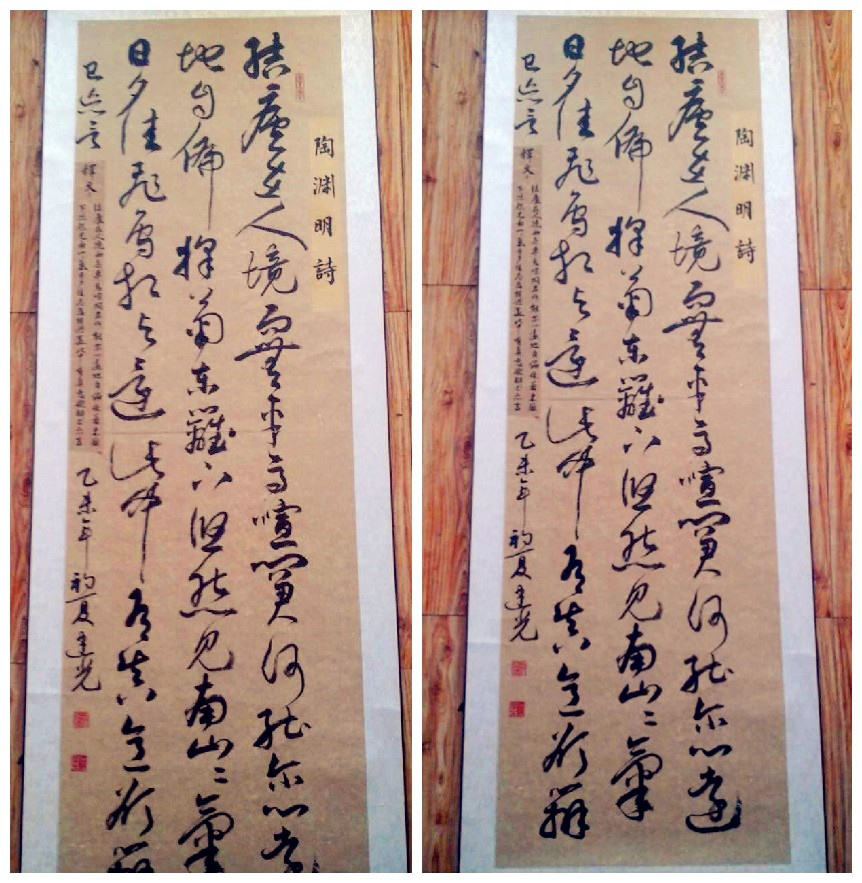 陶渊明詩
結廬在人境而無車馬喧問君何能尔心遠
地自偏採菊東籬下悠然見南山々氣
日夕佳飛鳥相与還此中有真意欲辯
已忘言
釋文
乙未年初夏建光
陶渊明詩
結廬在人境而無車馬喧問君何能尔心遠
地自偏採菊東籬下悠然見南山々氣
日夕佳飛鳥相与還此中有真意欲辯
已忘言
釋文
乙未年初夏建光